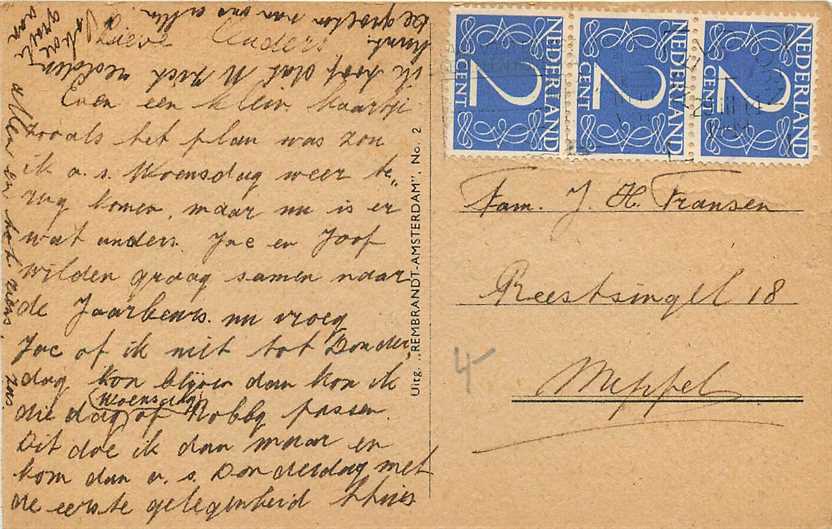 Lieve Ouders
Even een klein kaartje
zooals het plan was zou
ik a.s. Woensdag weer te"
rug komen, maar nu is er
wat anders. Jac en Joop
wilden graag samen naar
de Jaarbeurs nu vroeg
Jac of ik niet tot Donder"
dag kon blijven dan kon ik
die dag (Woensdag) op Robby passen.
Dit doe ik dan maar en
kom dan a.s. Donderdag met
de eerste gelegenheid thuis
ik hoop dat U zich redden
kunt.
de groeten van ons allen
Uitg. „REMBRANDT-AMSTERDAM". No. 2
NEDERLAND
2
CENT
NEDERLAND
2
CENT
NEDERLAND
2
CENT
Fam. J. H. Fransen
Reestsingel 18
Meppel
4-